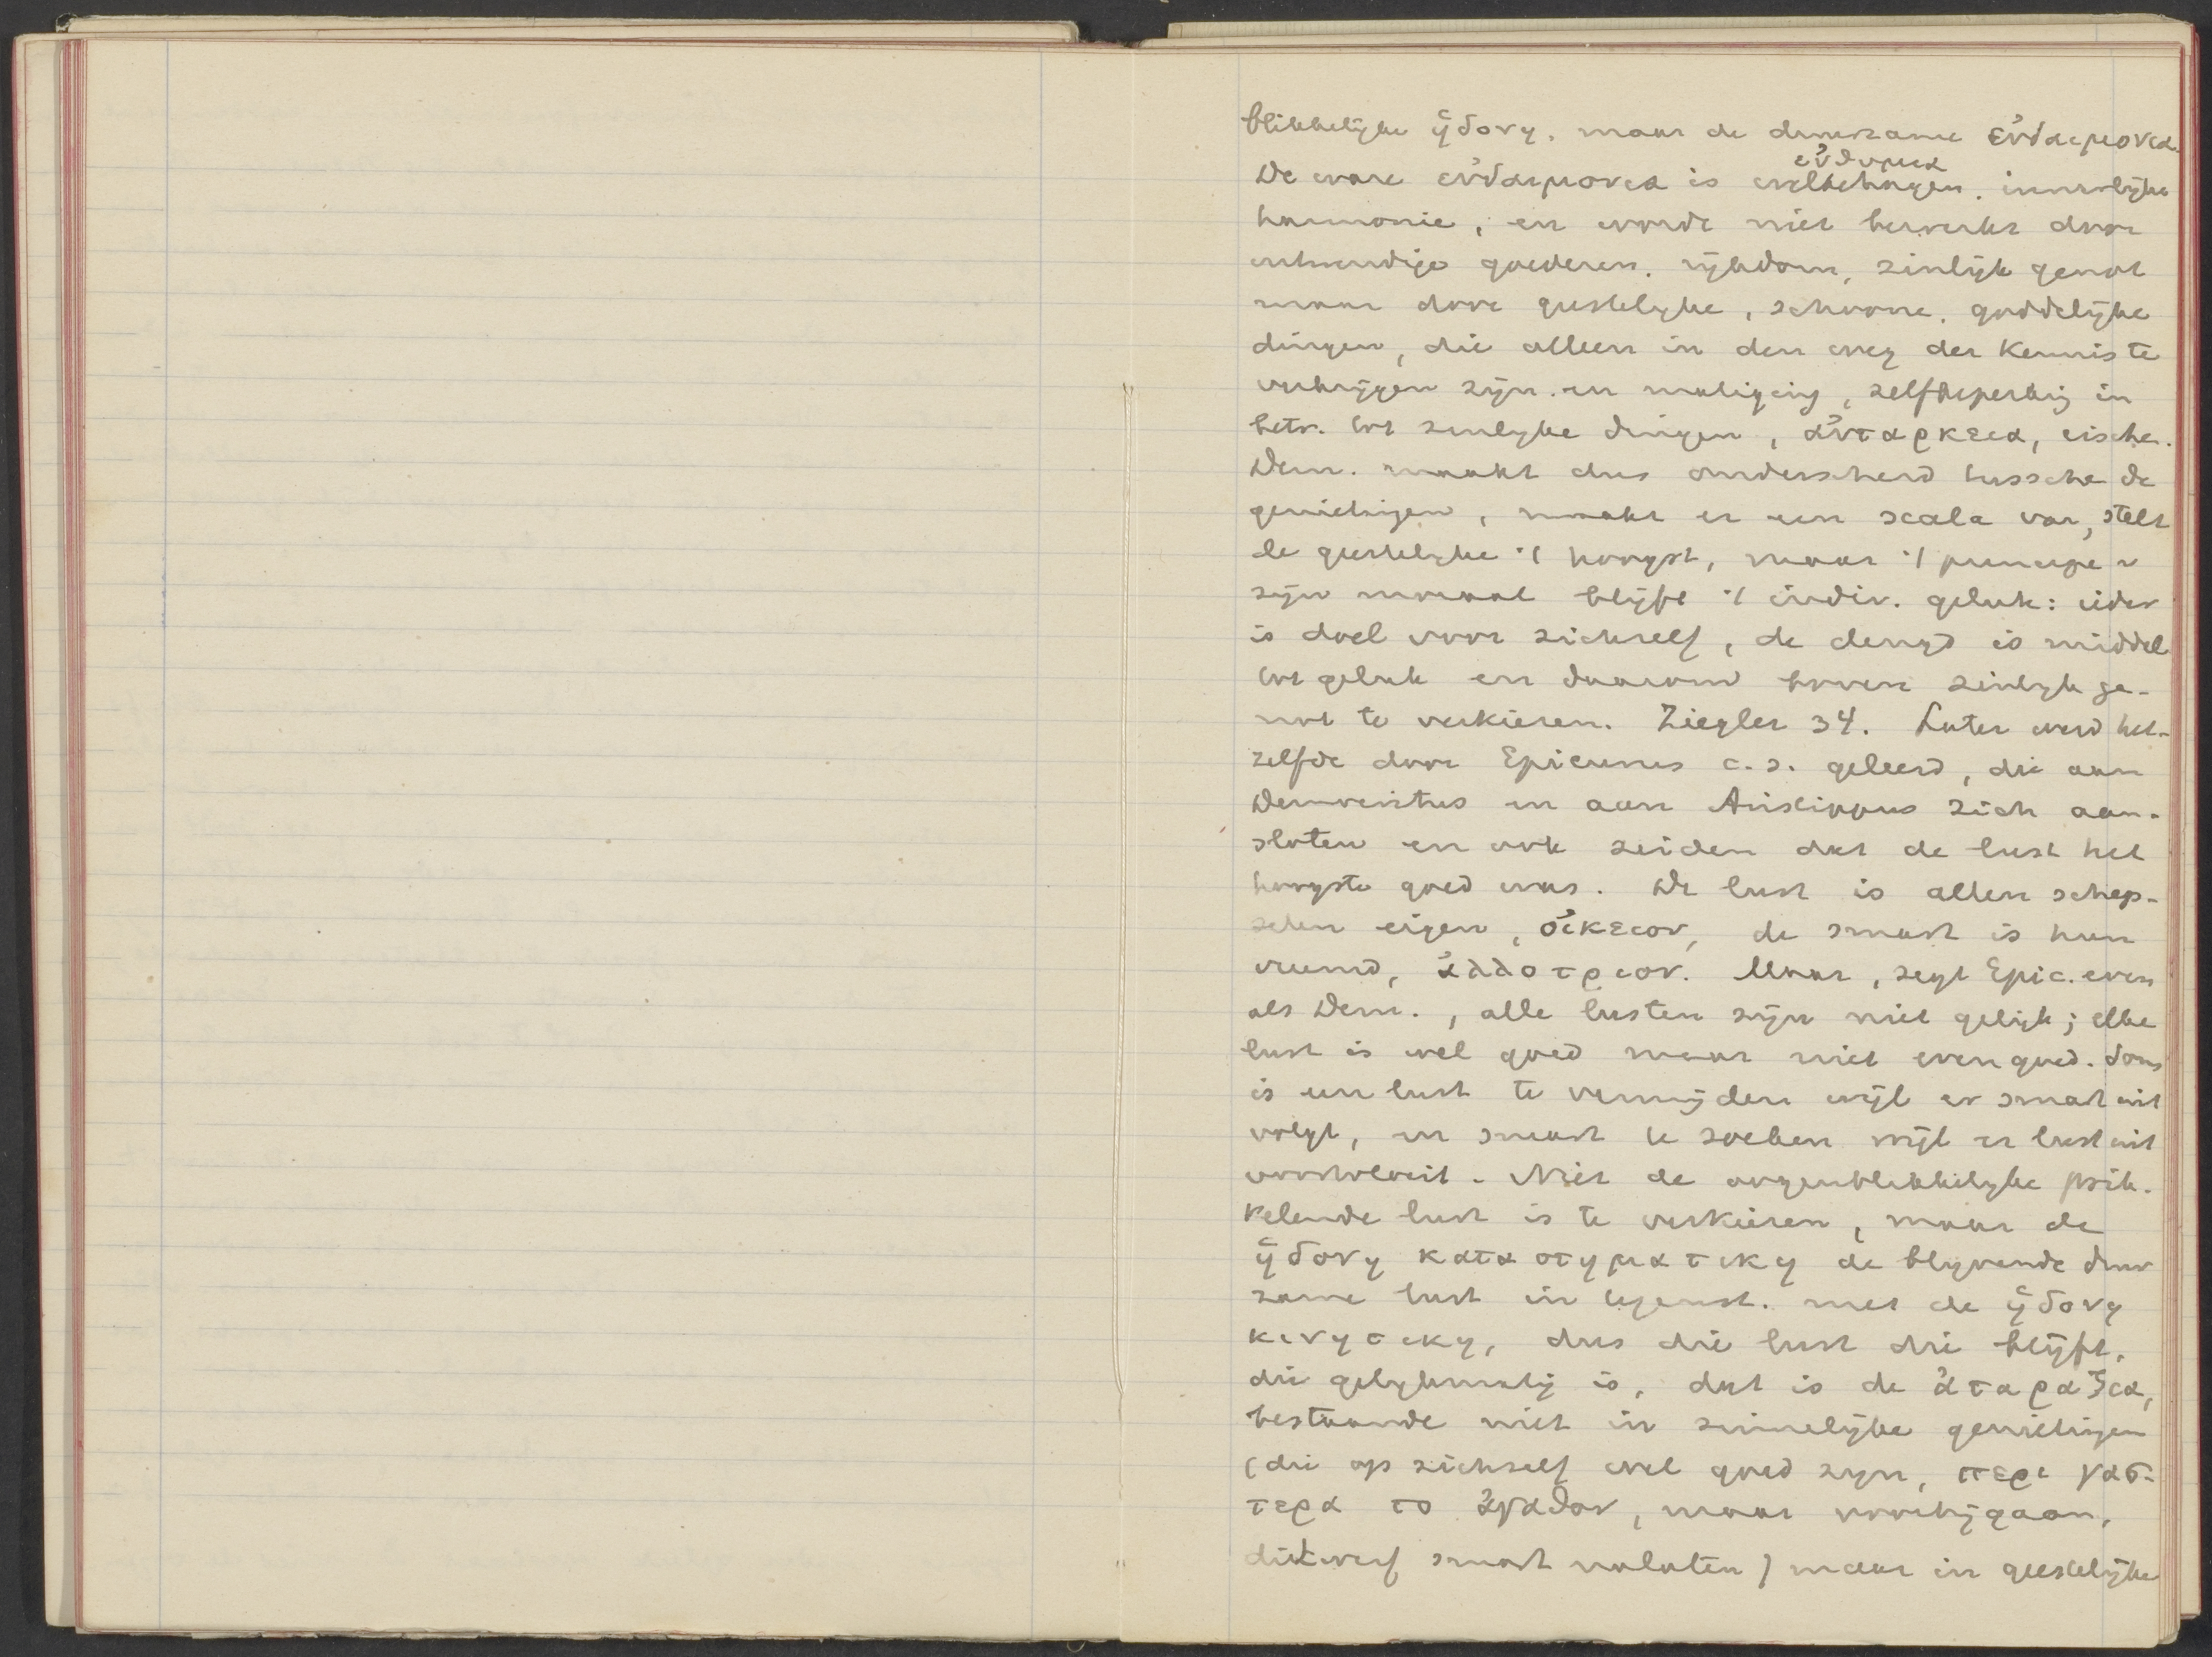 blikkelijke ἡδονη, maar de duurzame εὐδαιμονια.
De ware εὐδαιμονια is welbehagen, innerlijke
εὐθυμια
harmonie, en wordt niet bewerkt door
uitwendige goederen, rijkdom, zinlijk genot
maar door geestelijke, schoone, goddelijke
dingen, die alleen in den weg der Kennis te
verkrijgen zijn en matiging, zelfbeperking in
betr. tot zinlijke dingen, αὐταρκεια, eischen.
Dem. maakt dus onderscheid tussche de
genietingen, maakt er een scala van, stelt
de geestelijke 't hoogst, maar 't principe v
zijn moraal blijft 't indiv. geluk: ieder
is doel voor zichzelf, de deugd is middel
tot geluk en daarom boven zinlijk ge-
not te verkiezen. Ziegler 34. Later werd het-
zelfde door Epicurus c.s. geleerd, die aan
Democritus en aan Aristippus zich aan-
sloten en ook zeiden dat de lust het
hoogste goed was. De lust is allen schep-
selen eigen, οἰκειον, de smart is hun
vreemd, ἀλλοτριον. Maar, zegt Epic. even
als Dem., alle lusten zijn niet gelijk; elke
lust is wel goed maar niet even goed. Soms
is een lust te vermijden wijl er smart uit
volgt, en smart te zoeken wijl er lust uit
voortvloeit. Niet de oogenblikkelijke prik-
kelende lust is te verkiezen, maar de
ἡδονη καταστηματικη de blijvende duur
zame lust in tegenst. met de ἡδονη
κινητικη, dus die lust die blijft,
die gelijkmatig is, dat is de ἀταραξια,
bestaande niet in zinnelijke genietingen
(die op zichzelf wel goed zijn, περι γασ-
τερα το ἀγαθον, maar voorbijgaan,
dikwerf smart nalaten) maar in geestelijke